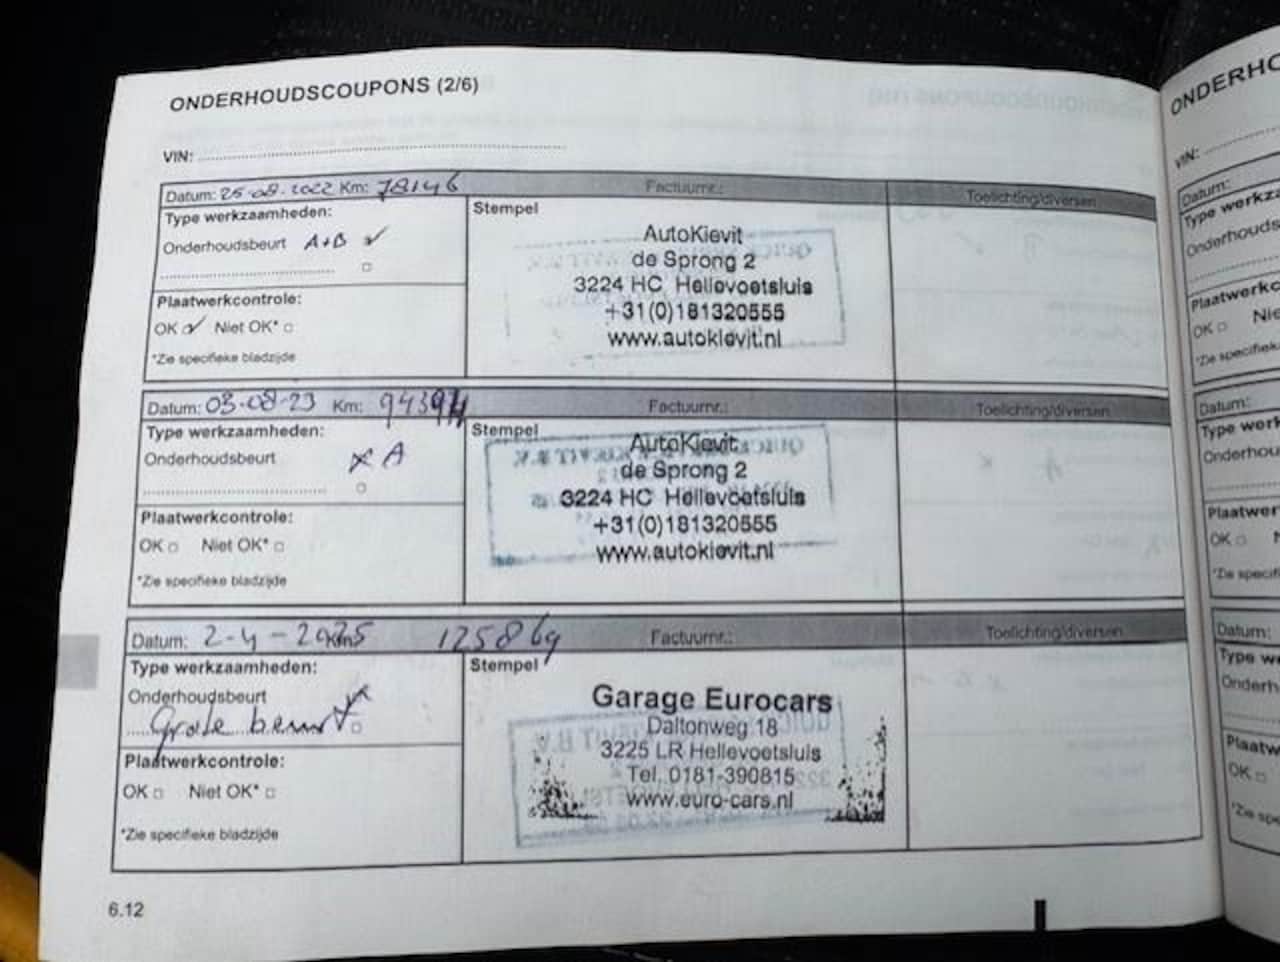 ONDERHOUDSCOUPONS (2/6)
VIN:
Datum: 25-08-2022 Km: 78146 Factuurnr.: Toelichting/diversen
Type werkzaamheden:
Onderhoudsbeurt A+B
Plaatwerkcontrole:
OK Niet OK*
*Zie specifieke bladzijde
Stempel
AutoKievit
de Sprong 2
3224 HC Hellevoetsluis
+31(0)181320555
www.autokievit.nl
Datum: 03-08-23 Km: Factuurnr.: Toelichting/diversen
Type werkzaamheden:
Onderhoudsbeurt A
Plaatwerkcontrole:
OK Niet OK*
*Zie specifieke bladzijde
Stempel
AutoKievit
de Sprong 2
3224 HC Hellevoetsluis
+31(0)181320555
www.autokievit.nl
Datum: 2-4-2025 Km: 125869 Factuurnr.: Toelichting/diversen
Type werkzaamheden:
Onderhoudsbeurt
Grote beurt
Plaatwerkcontrole:
OK Niet OK*
*Zie specifieke bladzijde
Stempel
Garage Eurocars
Daltonweg 18
3225 LR Hellevoetsluis
Tel. 0181-390815
www.euro-cars.nl
6.12
ONDERHO
VIN:
Datum:
Type werkza
Onderhouds
Plaatwerkc
OK Nie
*Zie specifieke
Datum:
Type werk
Onderhou
Plaatwer
OK
*Zie specifi
Datum:
Type we
Onderh
Plaatw
OK
*Zie spe